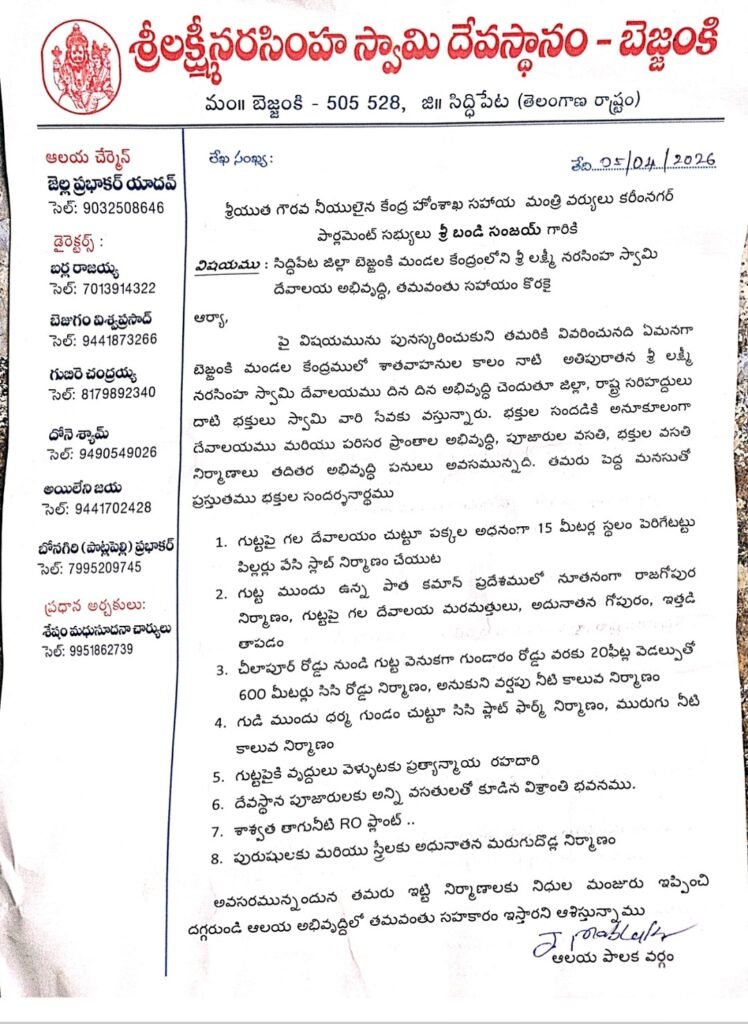 శ్రీలక్ష్మీనరసింహ స్వామి దేవస్థానం - బెజ్జంకి
మం॥ బెజ్జంకి - 505 528, జి॥ సిద్ధిపేట (తెలంగాణ రాష్ట్రం)
ఆలయ చేర్మెన్
జెల్ల ప్రభాకర్ యాదవ్
సెల్: 9032508646
డైరెక్టర్స్ :
బర్ల రాజయ్య
సెల్: 7013914322
బెజుగం విశ్వప్రసాద్
సెల్: 9441873266
గుబిరె చంద్రయ్య
సెల్: 8179892340
దోనె శ్యామ్
సెల్: 9490549026
అయిలేని జయ
సెల్: 9441702428
బోనగిరి (పొట్లపెల్లి) ప్రభాకర్
సెల్: 7995209745
ప్రధాన అర్చకులు:
శేషం మధుసూదనా చార్యులు
సెల్: 9951862739
లేఖ సంఖ్య:
తేది 05/04/2026
శ్రీయుత గౌరవ నీయులైన కేంద్ర హోంశాఖ సహాయ మంత్రి వర్యులు కరీంనగర్
పార్లమెంట్ సభ్యులు శ్రీ బండి సంజయ్ గారికి
విషయము : సిద్దిపేట జిల్లా బెజ్జంకి మండల కేంద్రంలోని శ్రీ లక్ష్మీ నరసింహ స్వామి
దేవాలయ అభివృద్ధి, తమవంతు సహాయం కొరకై
ఆర్యా,
పై విషయమును పునస్కరించుకుని తమరికి వివరించునది ఏమనగా
బెజ్జంకి మండల కేంద్రములో శాతవాహనుల కాలం నాటి అతిపురాతన శ్రీ లక్ష్మీ
నరసింహ స్వామి దేవాలయము దిన దిన అభివృద్ధి చెందుతూ జిల్లా, రాష్ట్ర సరిహద్దులు
దాటి భక్తులు స్వామి వారి సేవకు వస్తున్నారు. భక్తుల సందడికి అనుకూలంగా
దేవాలయము మరియు పరిసర ప్రాంతాల అభివృద్ధి, పూజారుల వసతి, భక్తుల వసతి
నిర్మాణాలు తదితర అభివృద్ధి పనులు అవసమున్నది. తమరు పెద్ద మనసుతో
ప్రస్తుతము భక్తుల సందర్శనార్థము
1. గుట్టపై గల దేవాలయం చుట్టూ పక్కల అధనంగా 15 మీటర్ల స్థలం పెరిగేటట్టు
పిల్లర్లు వేసి స్లాబ్ నిర్మాణం చేయుట
2. గుట్ట ముందు ఉన్న పాత కమాన్ ప్రదేశములో నూతనంగా రాజగోపుర
నిర్మాణం, గుట్టపై గల దేవాలయ మరమత్తులు, అదునాతన గోపురం, ఇత్తడి
తాపడం
3. చీలాపూర్ రోడ్డు నుండి గుట్ట వెనుకగా గుండారం రోడ్డు వరకు 20ఫీట్ల వెడల్పుతో
600 మీటర్లు సిసి రోడ్డు నిర్మాణం, అనుకుని వర్షపు నీటి కాలువ నిర్మాణం
4. గుడి ముందు ధర్మ గుండం చుట్టూ సిసి ప్లాట్ ఫార్మ్ నిర్మాణం, మురుగు నీటి
కాలువ నిర్మాణం
5. గుట్టపైకి వృద్దులు వెళ్ళుటకు ప్రత్యాన్మాయ రహదారి
6. దేవస్థాన పూజారులకు అన్ని వసతులతో కూడిన విశ్రాంతి భవనము.
7. శాశ్వత తాగునీటి RO ప్లాంట్ ..
8. పురుషులకు మరియు స్త్రీలకు అధునాతన మరుగుదొడ్ల నిర్మాణం
అవసరమున్నందున తమరు ఇట్టి నిర్మాణాలకు నిధుల మంజురు ఇప్పించి
దగ్గరుండి ఆలయ అభివృద్దిలో తమవంతు సహకారం ఇస్తారని ఆశిస్తున్నాము
J. Prabhakar
ఆలయ పాలక వర్గం